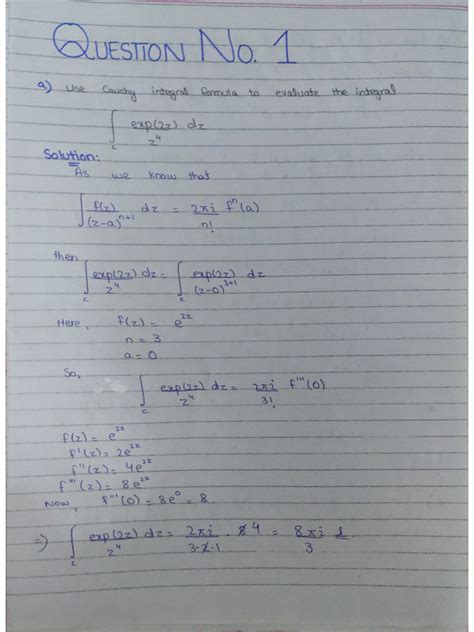 QUESTION No. 1
a) Use Cauchy integral formula to evaluate the integral
∫c exp(2z)/z⁴ dz
Solution:
As we know that
∫ f(z)/(z-a)ⁿ⁺¹ dz = 2πi/n! fⁿ(a)
then
∫c exp(2z)/z⁴ dz = ∫c exp(2z)/(z-0)³⁺¹ dz
Here, f(z) = e²ᶻ
n = 3
a = 0
So,
∫c exp(2z)/z⁴ dz = 2πi/3! f'''(0)
f(z) = e²ᶻ
f'(z) = 2e²ᶻ
f''(z) = 4e²ᶻ
f'''(z) = 8e²ᶻ
Now, f'''(0) = 8e⁰ = 8.
⇒ ∫c exp(2z)/z⁴ dz = 2πi/3·2·1 · 8 4 = 8πi/3